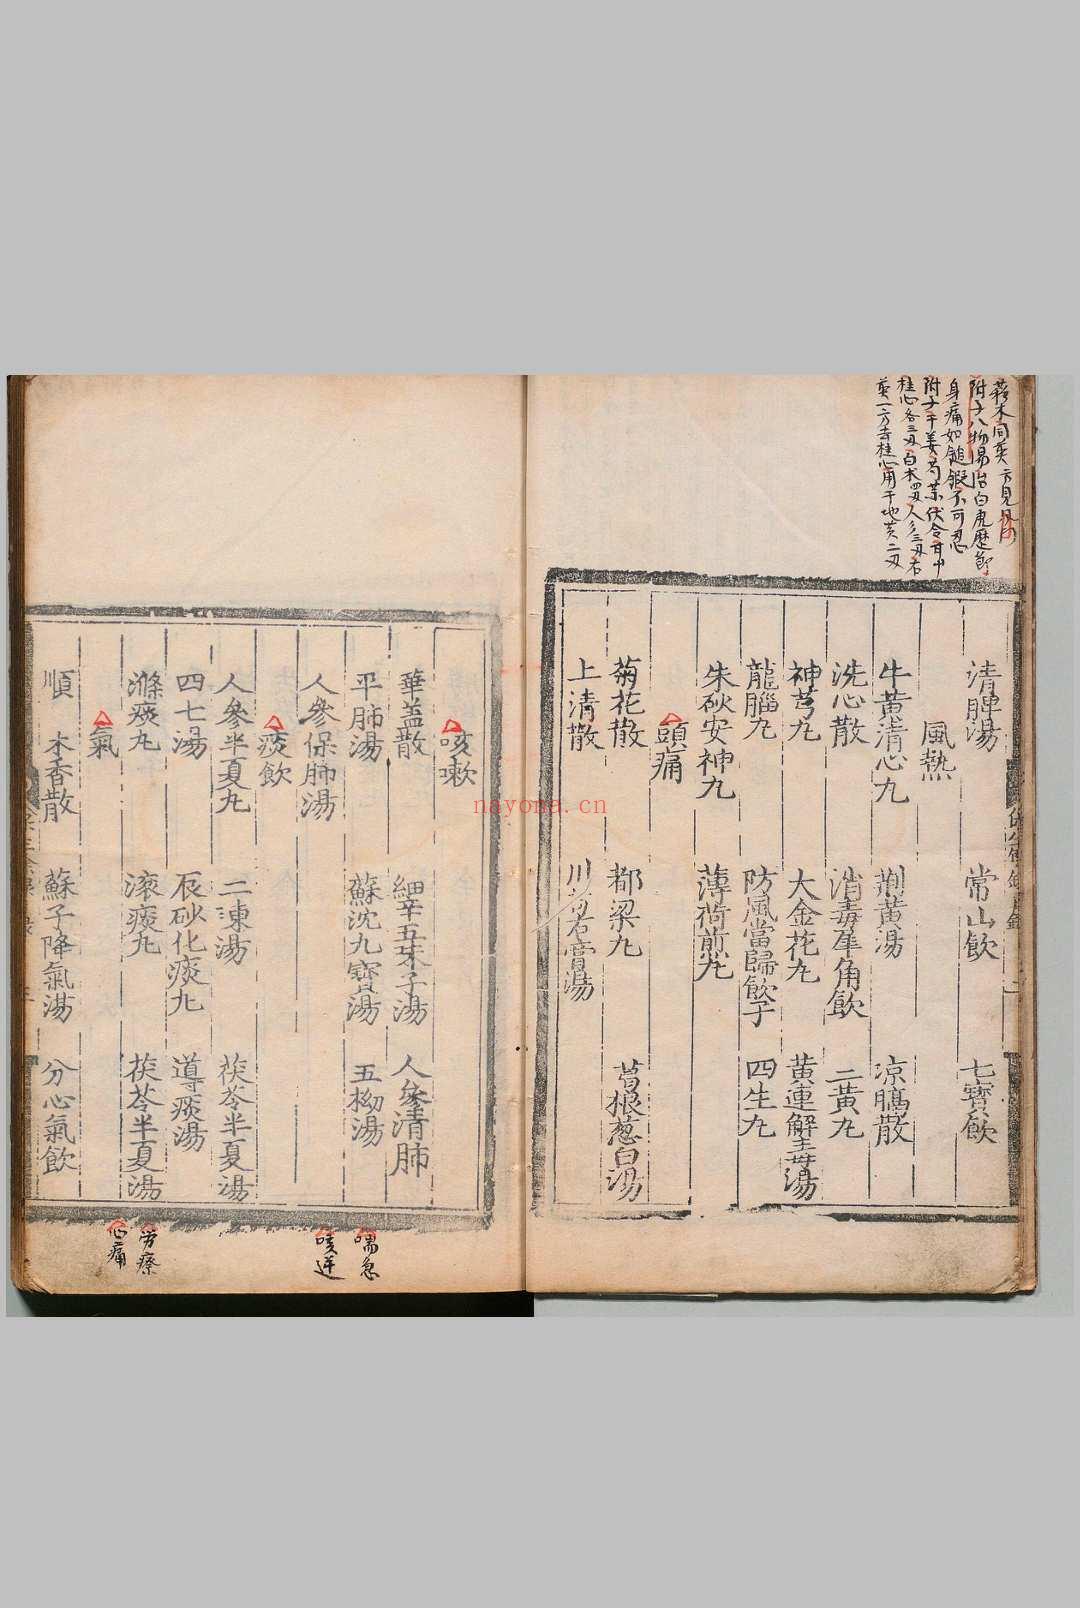 蒁木同煎一方見
附子八物湯治白虎歷節
身痛如鎚鍜不可忍
附子干姜芍茱伏令甘中
桂心各三刄白朮四刄人參三刄右
煎一方去桂心用干地黃二刄
清脾湯 常山飲 七寶飲
風熱
牛黃清心丸 荊黃湯 凉膈散
洗心散 消毒犀角飲 二黃丸
神芎丸 大金花丸 黃連解毒湯
龍腦丸 防風當歸飲子 四生丸
朱砂安神丸 薄荷煎丸
頭痛
菊花散 都梁丸 葛根葱白湯
上清散 川芎石膏湯
咳嗽
華盖散 細辛五味子湯 人參清肺
平肺湯 蘇沈九寶湯 五拗湯
人參保肺湯
痰飲
人參半夏丸 二陳湯 茯苓半夏湯
四七湯 辰砂化痰丸 導痰湯
滌痰丸 滚痰丸 茯苓半夏湯
氣
順 木香散 蘇子降氣湯 分心氣飲
喘急
咳逆
労瘵
心痛
nayona.cn